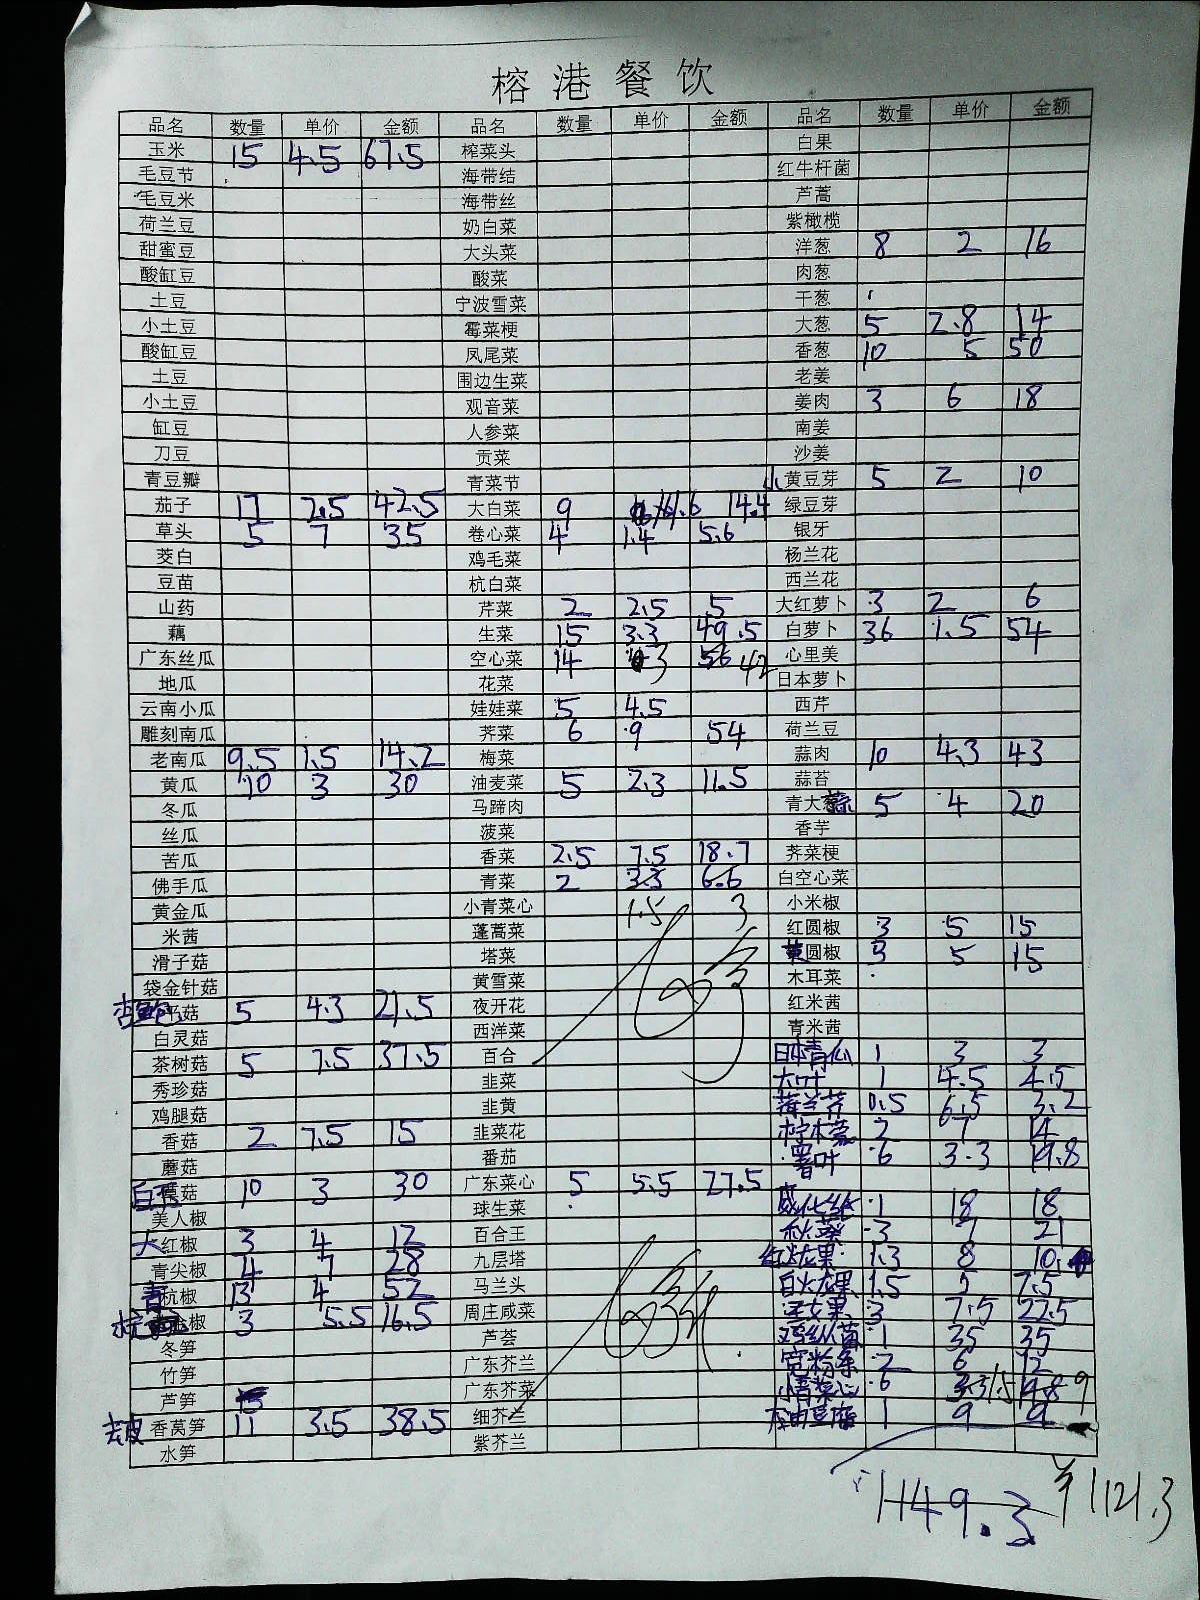 榕港餐饮
品名 数量 单价 金额 品名 数量 单价 金额 品名 数量 单价 金额
玉米 15 4.5 67.5 榨菜头 白果
毛豆节 海带结 红牛杆菌
毛豆米 海带丝 芦蒿
荷兰豆 奶白菜 紫橄榄
甜蜜豆 大头菜 洋葱 8 2 16
酸缸豆 酸菜 肉葱
土豆 宁波雪菜 干葱
小土豆 霉菜梗 大葱 5 2.8 14
酸缸豆 凤尾菜 香葱 10 5 50
土豆 围边生菜 老姜
小土豆 观音菜 姜肉 3 6 18
缸豆 人参菜 南姜
刀豆 贡菜 沙姜
青豆瓣 青菜节 小黄豆芽 5 2 10
茄子 17 2.5 42.5 大白菜 9 1.6 14.4 绿豆芽
草头 5 7 35 卷心菜 4 1.4 5.6 银牙
茭白 鸡毛菜 杨兰花
豆苗 杭白菜 西兰花
山药 芹菜 2 2.5 5 大红萝卜 3 2 6
藕 生菜 15 3.3 49.5 白萝卜 36 1.5 54
广东丝瓜 空心菜 14 3 56 42 心里美
地瓜 花菜 日本萝卜
云南小瓜 娃娃菜 5 4.5 西芹
雕刻南瓜 荠菜 6 9 54 荷兰豆
老南瓜 9.5 1.5 14.2 梅菜 蒜肉 10 4.3 43
黄瓜 10 3 30 油麦菜 5 2.3 11.5 蒜苔
冬瓜 马蹄肉 青大蒜 5 4 20
丝瓜 菠菜 香芋
苦瓜 香菜 2.5 7.5 18.7 荠菜梗
佛手瓜 青菜 2 3.3 6.6 白空心菜
黄金瓜 小青菜心 1.5 3 小米椒
米茜 蓬蒿菜 红圆椒 3 5 15
滑子菇 塔菜 黄圆椒 3 5 15
袋金针菇 黄雪菜 木耳菜
杏鲍菇 5 4.3 21.5 夜开花 红米茜
白灵菇 西洋菜 青米茜
茶树菇 5 7.5 37.5 百合 日本青瓜 1 3 3
秀珍菇 韭菜 大叶 1 4.5 4.5
鸡腿菇 韭黄 荷兰芹 0.5 6.5 3.2
香菇 2 7.5 15 韭菜花 柠檬 2 7 14
蘑菇 番茄 薯叶 6 3.3 19.8
白玉菇 10 3 30 广东菜心 5 5.5 27.5
美人椒 球生菜 威化纸 1 18 18
大红椒 3 4 12 百合王 秋葵 3 7 21
青尖椒 4 7 28 九层塔 红火龙果 1.3 8 10.4
青杭椒 13 4 52 马兰头 白火龙果 1.5 5 7.5
椒 3 5.5 16.5 周庄咸菜 圣女果 3 7.5 22.5
冬笋 芦荟 鸡纵菌 1 35 35
竹笋 广东芥兰 宽粉条 2 6 12
芦笋 广东芥菜 小青菜心 6 3.3 1.5 19.8 9
去皮香莴笋 11 3.5 38.5 细芥兰 豆腐 1 9 9
水笋 紫芥兰
1149.3 ¥1121.3